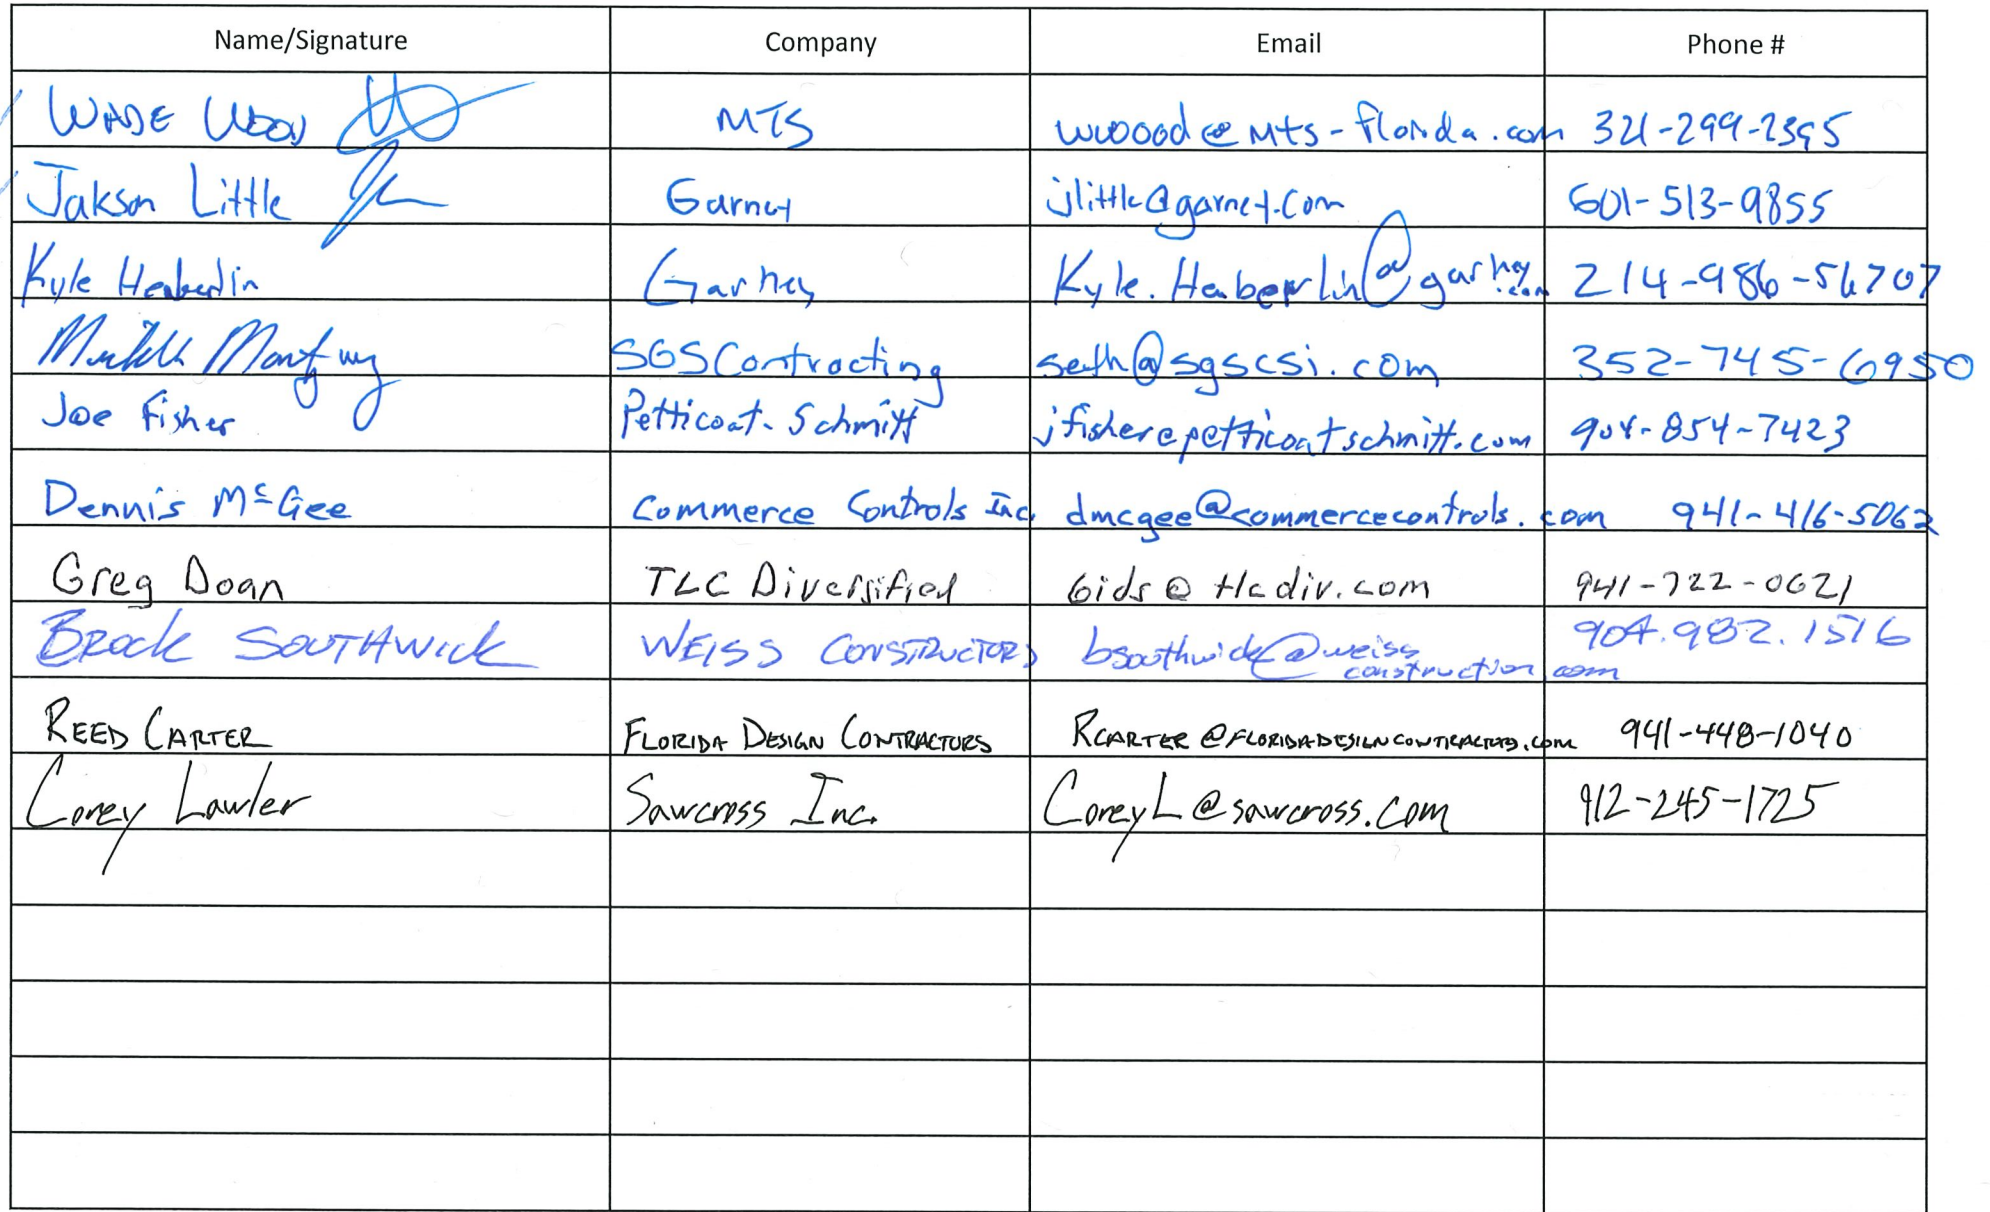 Name/Signature Company Email Phone #
WADE WOOD MTS wwoood@mts-florida.com 321-299-2395
Jakson Little Garney jlittle@garney.com 601-513-9855
Kyle Heaberlin Garney Kyle.Heaberlin@garney.com 214-986-56707
SGS Contracting seth@sgscsi.com 352-745-6950
Joe Fisher Petticoat-Schmitt jfisher@petticoatschmitt.com 904-854-7423
Dennis McGee Commerce Controls Inc. dmcgee@commercecontrols.com 941-416-5062
Greg Doan TLC Diversified bids@tlcdiv.com 941-722-0621
BROCK SOUTHWICK WEISS CONSTRUCTORS bsouthwick@weiss 904.982.1516
construction.com
REED CARTER FLORIDA DESIGN CONTRACTORS RCARTER@FLORIDADESIGNCONTRACTORS.com 941-448-1040
Corey Lawler Sawcross Inc. CoreyL@sawcross.com 912-245-1725